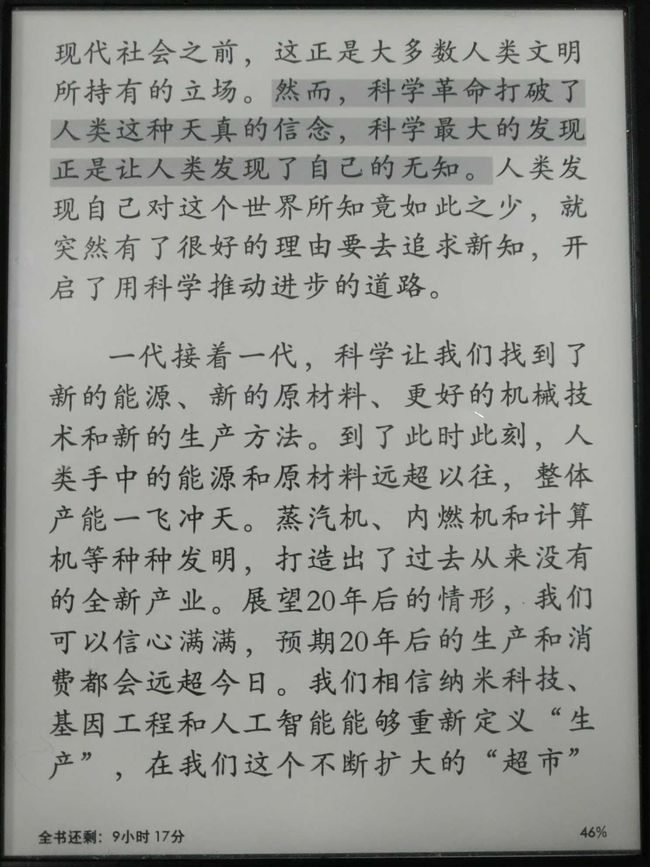 现代社会之前，这正是大多数人类文明
所持有的立场。然而，科学革命打破了
人类这种天真的信念，科学最大的发现
正是让人类发现了自己的无知。人类发
现自己对这个世界所知竟如此之少，就
突然有了很好的理由要去追求新知，开
启了用科学推动进步的道路。
一代接着一代，科学让我们找到了
新的能源、新的原材料、更好的机械技
术和新的生产方法。到了此时此刻，人
类手中的能源和原材料远超以往，整体
产能一飞冲天。蒸汽机、内燃机和计算
机等种种发明，打造出了过去从来没有
的全新产业。展望20年后的情形，我们
可以信心满满，预期20年后的生产和消
费都会远超今日。我们相信纳米科技、
基因工程和人工智能能够重新定义“生
产”，在我们这个不断扩大的“超市”
全书还剩：9小时17分
46%